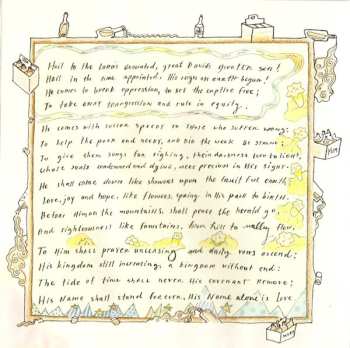 Hail to the Lords annointed, great Davids greater son!
Hail in the time appointed, His reign on earth begun!
He comes to break oppression, to set the captive free;
To take away transgression and rule in equity.
He comes with succor speedy to those who suffer wrong;
To help the poor and needy, and bid the weak be strong;
To give them songs for sighing, their darkness turn to light,
Whose souls, condemned and dying, were precious in His sight.
He shall come down like showers upon the fruitful earth;
Love, joy and hope, like flowers, spring in His path to birth.
Before Him on the mountains, shall peace the herald go,
And righteousness like fountains, from hill to valley flow.
To Him shall prayer unceasing and daily vows ascend;
His kingdom still increasing, a kingdom without end:
The tide of time shall never His covenant remove;
His Name shall stand forever, His Name alone is Love